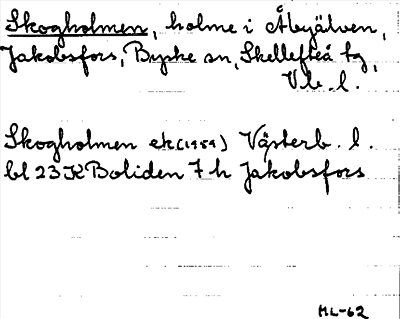 Skogholmen, holme i Åbyälven,
Jakobsfors, Byske sn, Skellefteå tg,
Vb. l.
Skogholmen ek (1959) Västerb. l.
bl 23 K Boliden 7 h Jakobsfors
ML-62